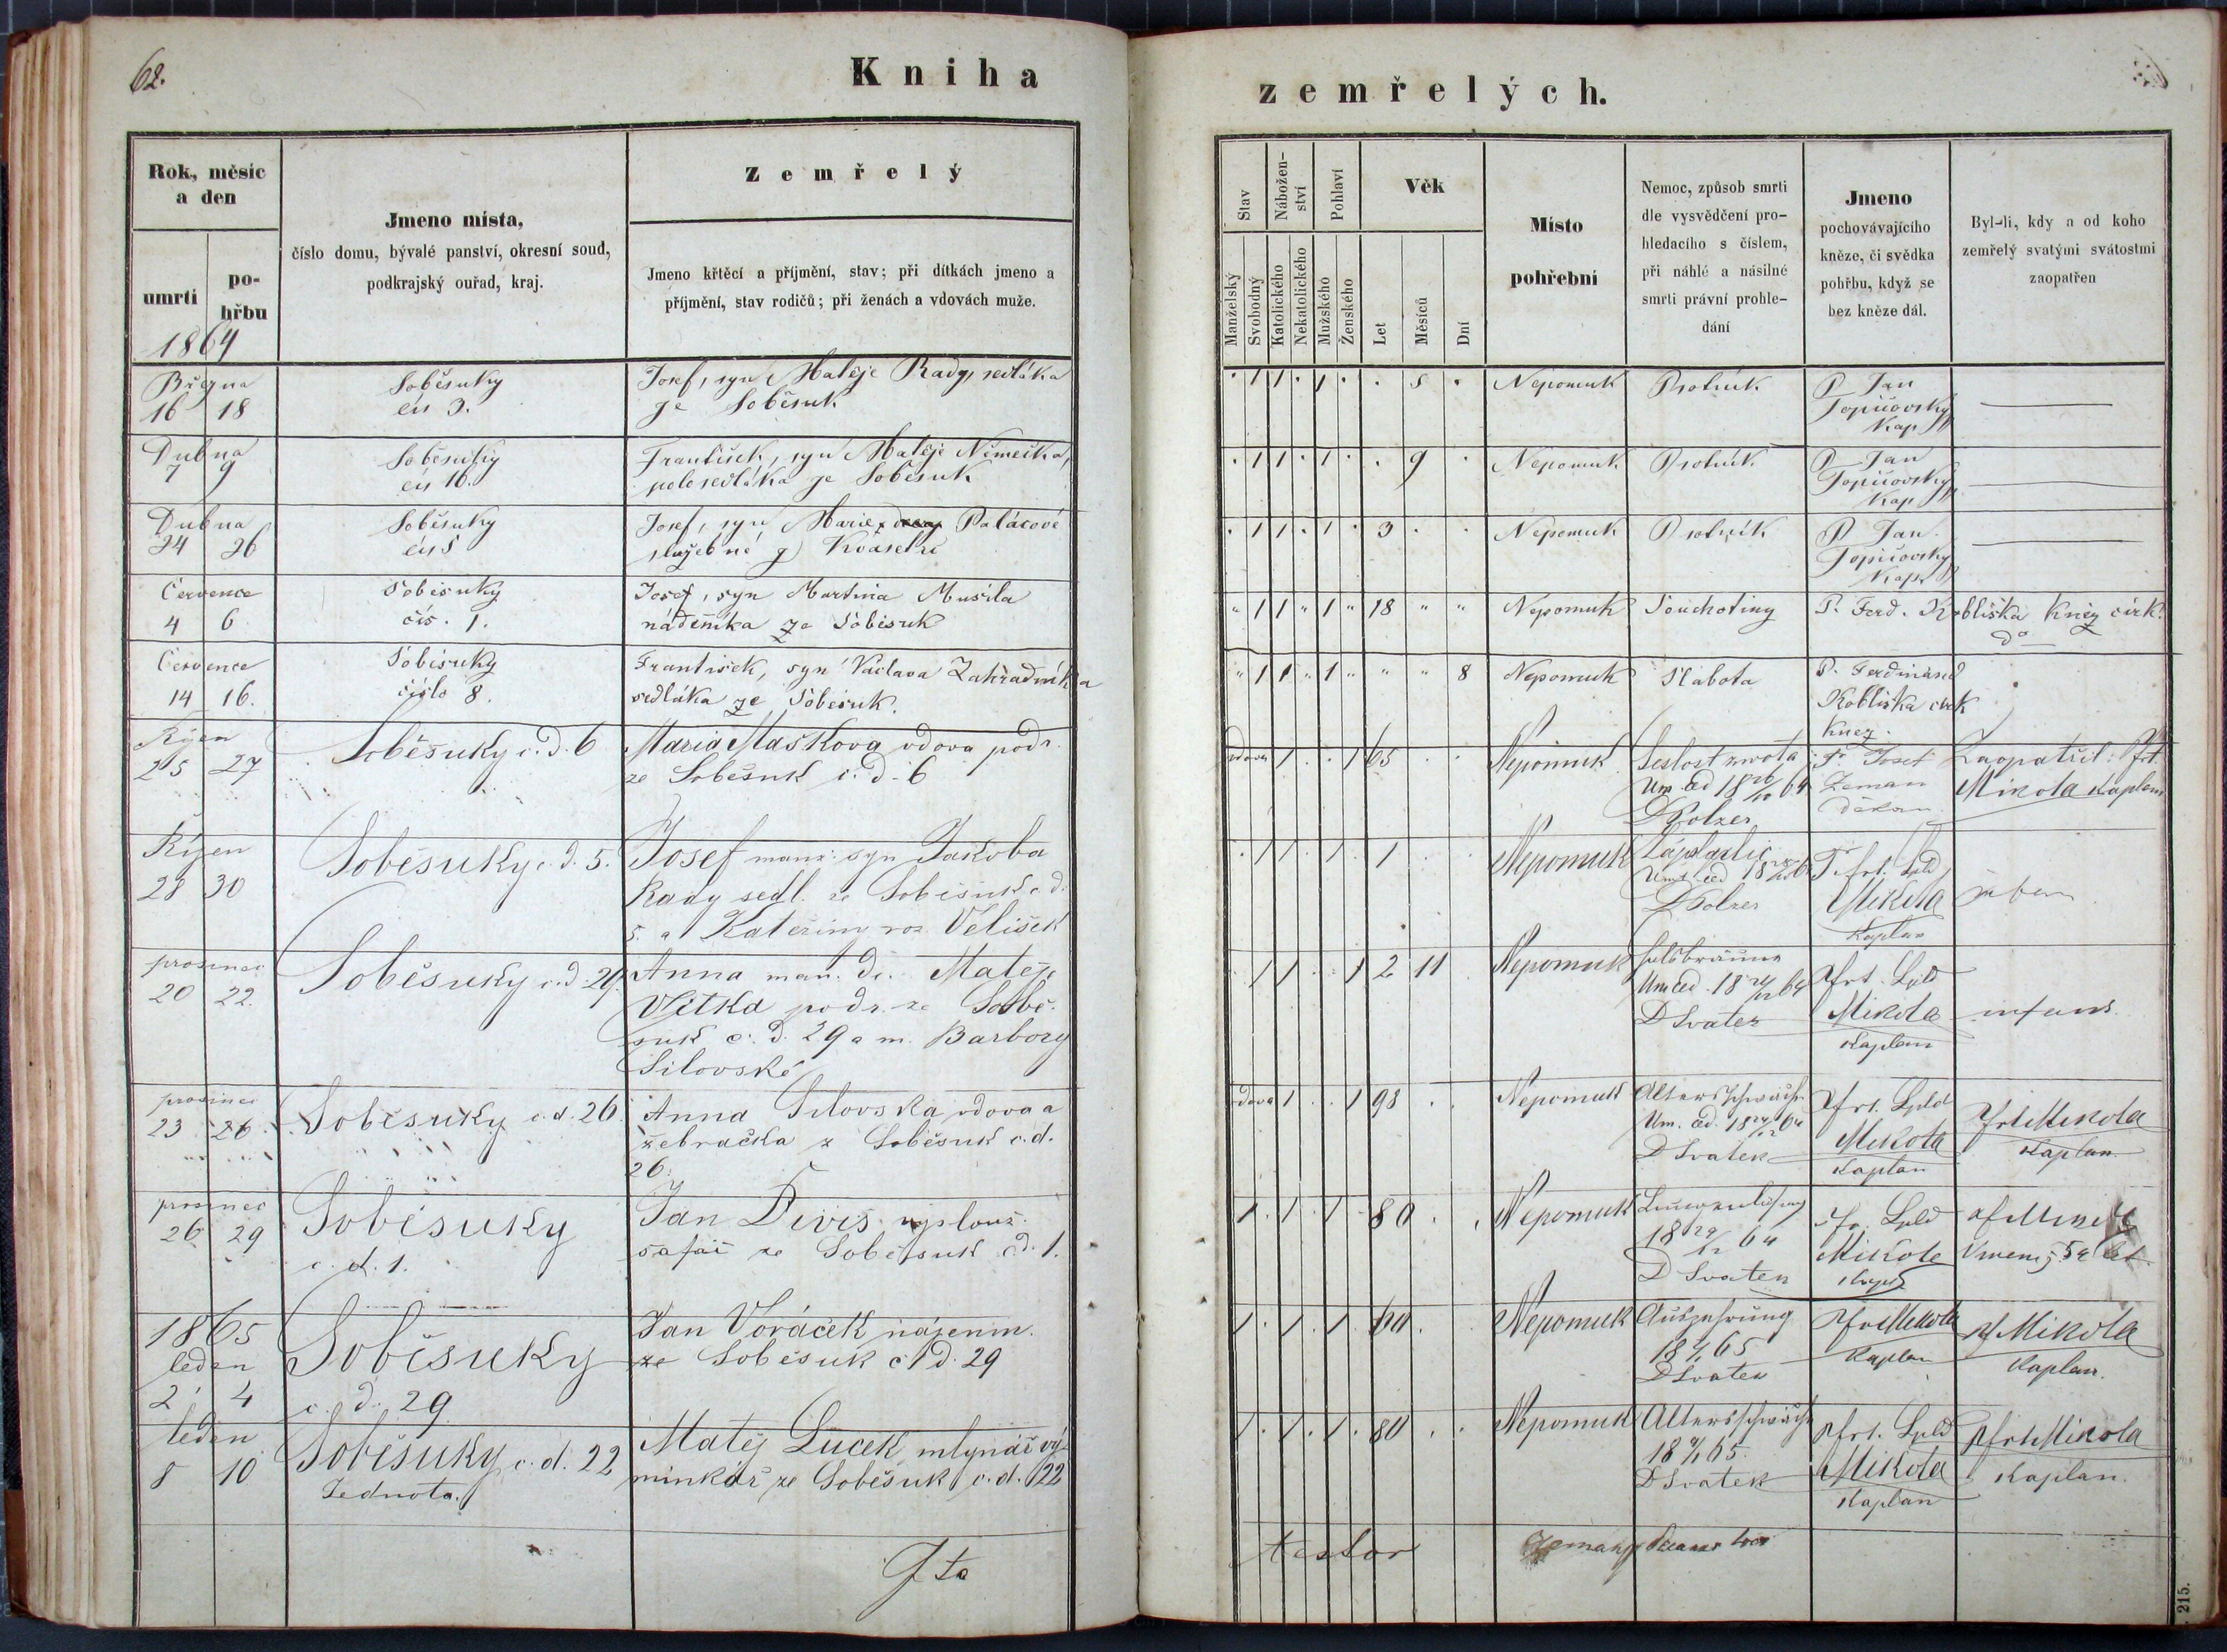 62.
Kniha
zemřelých.
Rok, měsíc
a den
umrtí
po-
hřbu
1864
Jmeno místa,
číslo domu, bývalé panství, okresní soud,
podkrajský ouřad, kraj.
Zemřelý
Jmeno křtěcí a příjmění, stav; při dítkách jmeno a
příjmění, stav rodičů; při ženách a vdovách muže.
Stav
Manželský
Svobodný
Nábožen-
ství
Katolického
Nekatolického
Pohlaví
Mužského
Ženského
Věk
Let
Měsíců
Dní
Místo
pohřební
Nemoc, způsob smrti
dle vysvědčení pro-
hledacího s číslem,
při náhlé a násilné
smrti právní prohle-
dání
Jmeno
pochovávajícího
kněze, či svědka
pohřbu, když se
bez kněze dál.
Byl-li, kdy a od koho
zemřelý svatými svátostmi
zaopatřen
Března
16 18
Soběsuky
čís 3.
Josef, syn Matěje Rady, sedláka
ze Soběsuk
1 1 1 5
Nepomuk
Psotník
P Jan
Topičovský
Kap
Dubna
7 9
Soběsuky
čís 10.
František, syn Matěje Němečka,
polosedláka ze Soběsuk
1 1 1 9
Nepomuk
Psotník
P Jan
Topičovský
Kap
Dubna
24 26
Soběsuky
čís 5
Josef, syn Marie Palácové
služebné z Kvasetic
1 1 1 3
Nepomuk
Psotník
P Jan
Topičovský
Kap
Července
4 6
Soběsuky
čís. 1.
Josef, syn Martina Musila
nádeníka ze Soběsuk
1 1 1 18
Nepomuk
Souchotiny
P. Ferd. Kobliška Kněz círk.
dº
Července
14 16.
Soběsuky
číslo 8.
František, syn Václava Zahradníka
sedláka ze Soběsuk.
1 1 1 8
Nepomuk
Slabota
P. Ferdinand
Kobliška cirk
kněz.
Říjen
25 27
Soběsuky c. d. 6
Maria Maškova vdova podr.
ze Soběsuk c. d. 6
vdova 1 1 65
Nepomuk
Seslost života
Um. čd 18 26/10 64
P. Josef
Zeman
Děkan
Zaopatřil: Frt.
Mikota Kaplan
Říjen
28 30
Soběsuky c. d. 5.
Josef manž. syn Jakoba
Rady sedl. ze Soběsuk c. d.
5. a Kateřiny roz. Velíšek
1 1 1 1
Nepomuk
Mikota
Kaplan
prosinec
20 22.
Soběsuky c. d. 29
Anna man. dc. Matěje
Vítka podr. ze Sobě-
suk c. d. 29 a m. Barbory
Silovské
1 1 1 2 11
Nepomuk
Halsbräune
D Svatek
Frt. Lpld
Mikota
Kaplan
infans
prosinec
23 26
Soběsuky c. d. 26
Anna Silovska vdova a
žebračka z Soběsuk c. d.
26.
vdova 1 1 98
Nepomuk
Altersschwäche
D Svatek
Frt. Lpld
Mikota
Kaplan
Frt Mikota
Kaplan
prosinec
26 29
Soběsuky
c. d. 1.
Jan Diviš vyslouž.
šafář ze Soběsuk c. d. 1.
1 1 1 80
Nepomuk
18 29/12 64
D Svatek
Lpld
Mikota
1865
leden
2 4
Soběsuky
c. d. 29
Jan Voráček nájemn.
ze Soběsuk č. d. 29
1 1 1 60
Nepomuk
Auszehrung
D Svatek
Frt Mikota
Kaplan
Mikota
Kaplan.
leden
8 10
Soběsuky c. d. 22
Jednota.
Matěj Lucek mlynář vý-
minkář ze Soběsuk c. d. 22
1 1 1 80
Nepomuk
Altersschwäche
D Svatek
Frt. Lpld
Mikota
Kaplan
Frt Mikota
Kaplan.
Ita
testor
215.